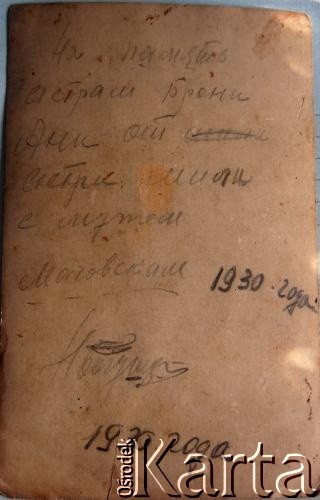 На память
астрам Брони
Ани от
систри мили
с мужем
Маговскам 1930 года
1930 года
Ośrodek Karta